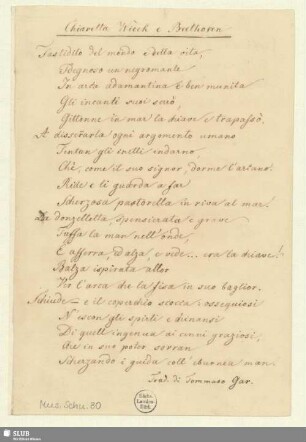 Chiaretta Wieck e Beethoven
Fastidito del mondo e della vita,
Sdegnoso un negromante
In arca adamantina e ben munita
Gli incanti suoi serrò,
Gittonne in mar la chiave e trapassò.
A disserrarla ogni argomento umano
Tentan gli snelli indarno,
Chè, come il suo signor, dorme l'arcano.
Ride e li guarda a far
Scherzosa pastorella in riva al mar.
La donzelletta, spensierata e
Tuffa la man nell'onde,
E afferra, ed alza, e vide... era la chiave!
Balza ispirata allor
Ver l'arca che la fisa in suo baglior.
Schiude — e il coperchio scocca: ossequiosi
N'escon gli spirti e chinansi
Di quell'ingenua ai cenni graziosi,
Che in suo poter sovran
Scherzando i guida coll'eburnea man.
Trad. di Tommaso Gar.
Mus. Schu. 80